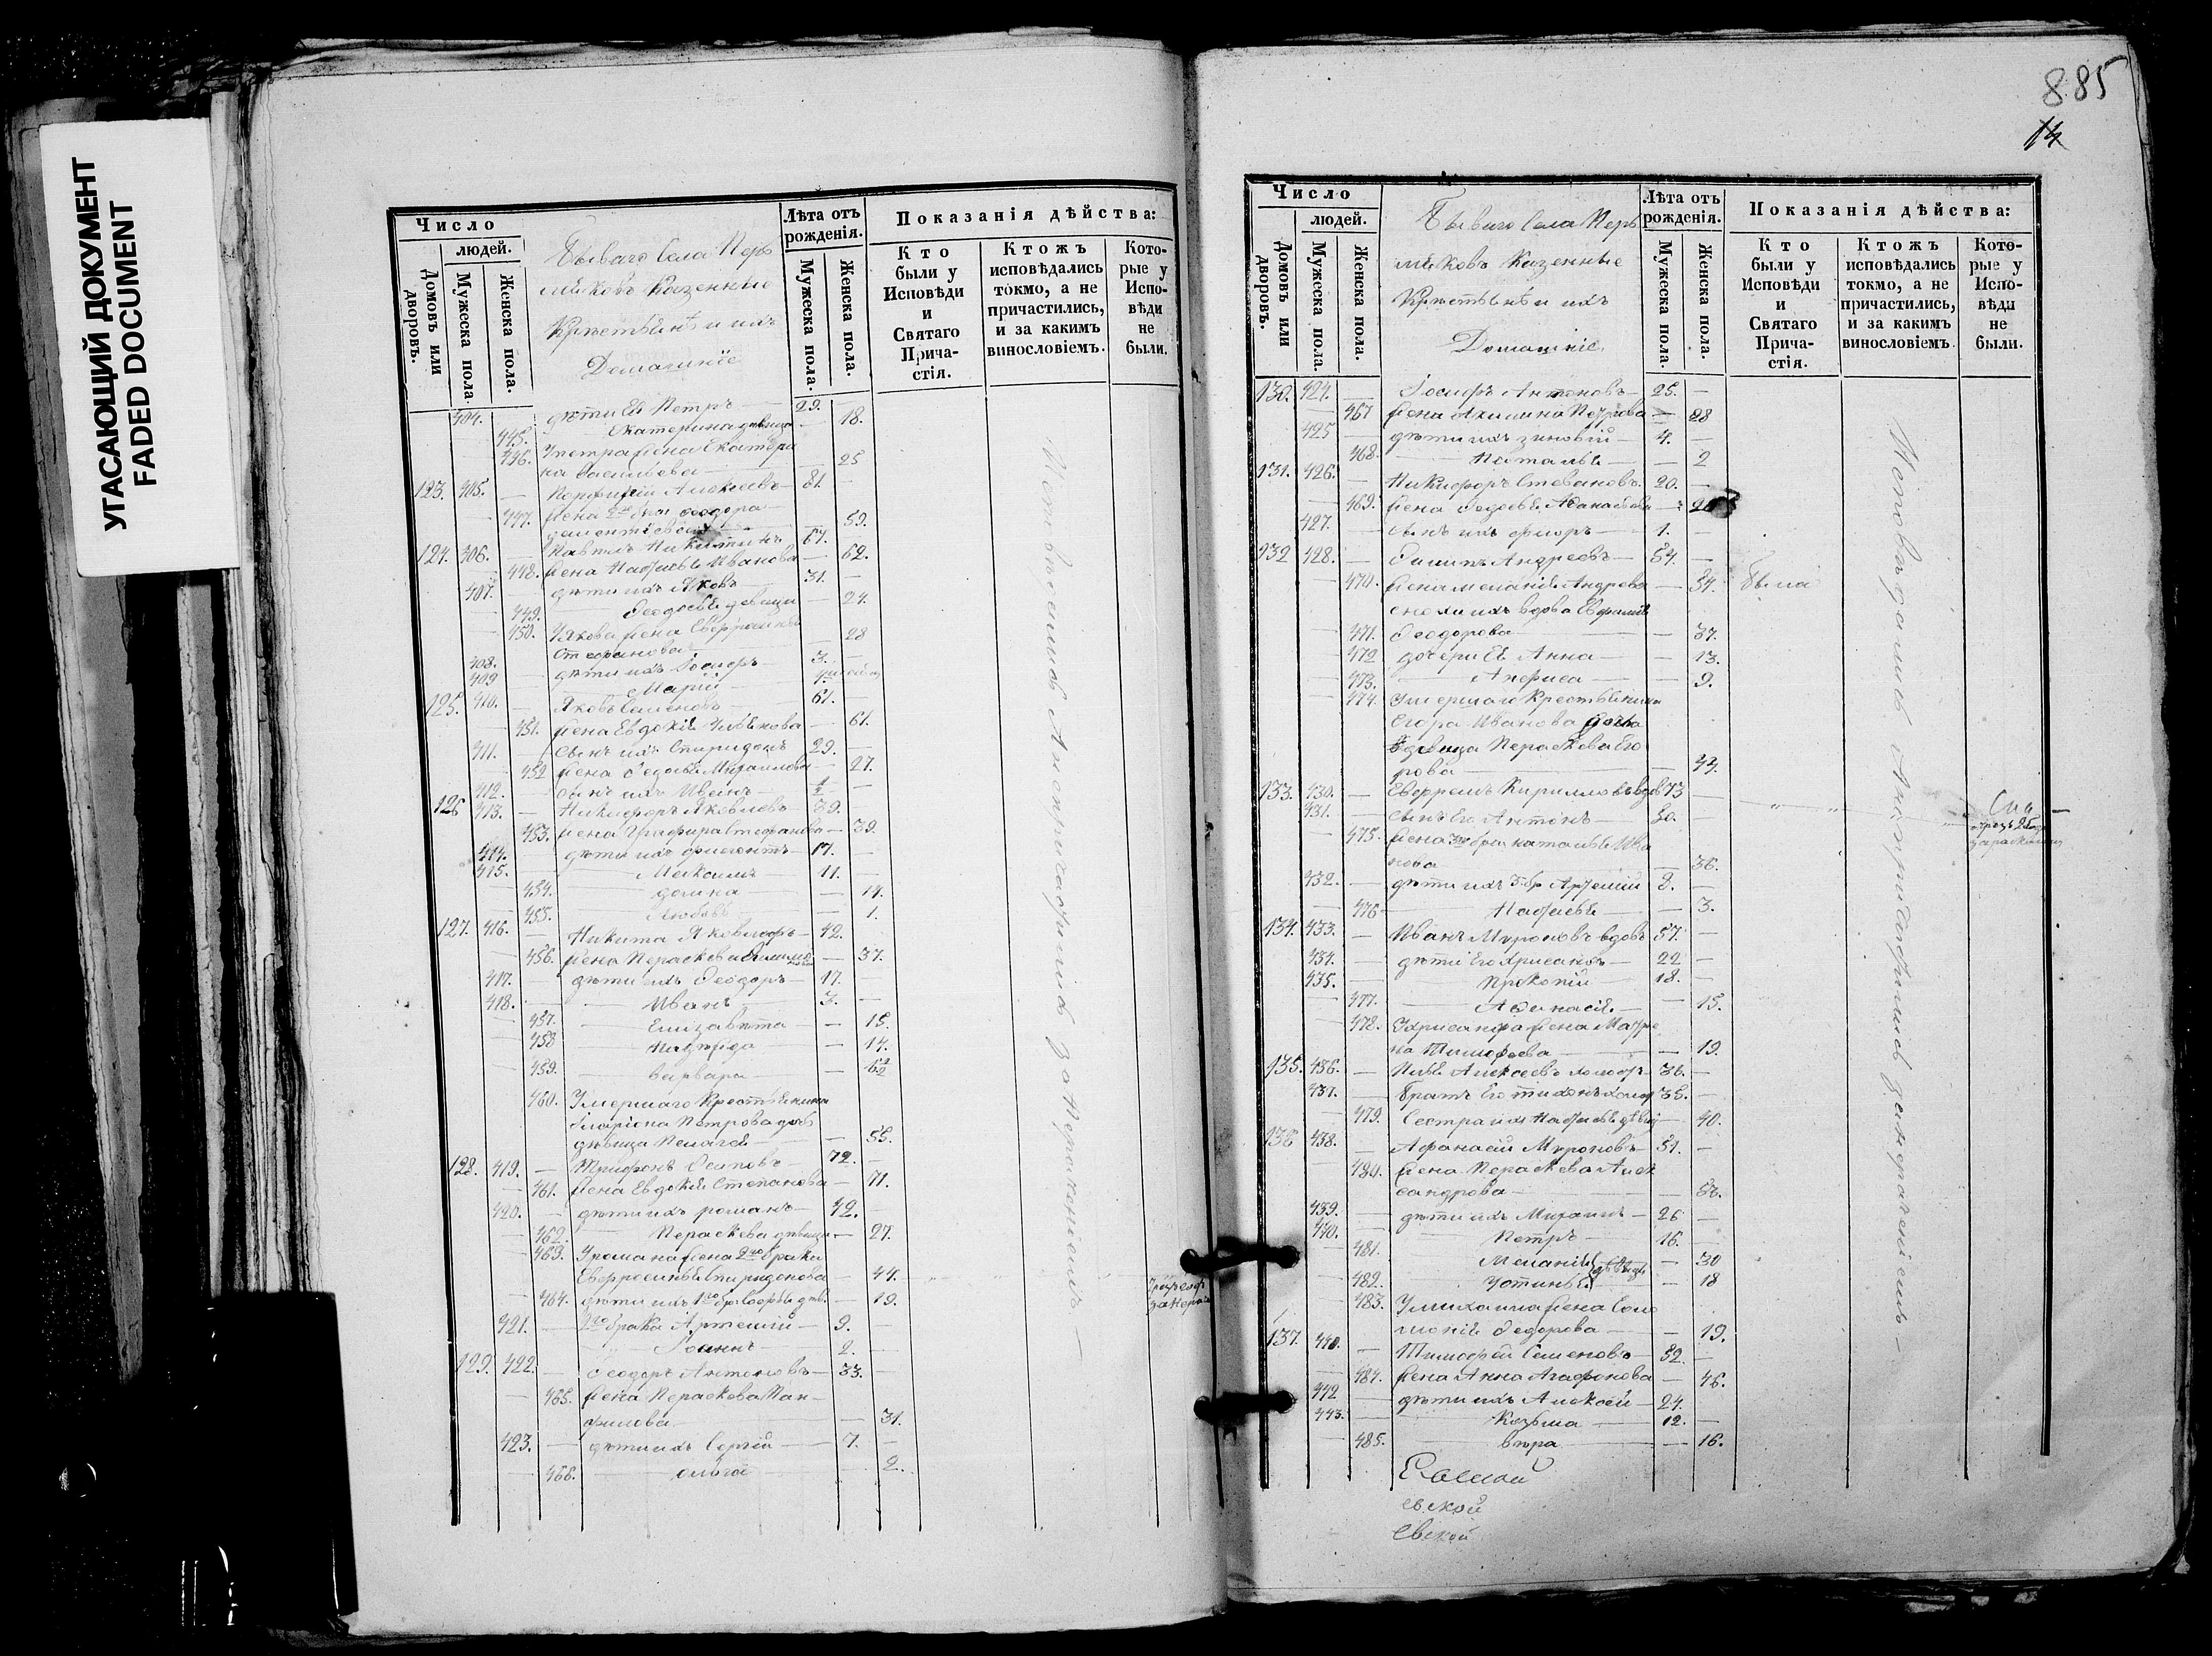 УГАСАЮЩИЙ ДОКУМЕНТ
FADED DOCUMENT
Число
людей.
Домовъ или дворовъ.
Мужеска пола.
Женска пола.
Бываго села Перъ
мяковъ Казенные
Крѣстьянѣ и ихъ
Домашніе
Лѣта отъ рожденія.
Мужеска пола.
Женска пола.
Показанія дѣйства:
Кто были у Исповѣди и Святаго Прича-стія.
Ктожъ исповѣдались токмо, а не причастились, и за какимъ винословіемъ.
Кото-рые у Испо-вѣди не были.
404. дѣти Ея Петръ 29.
445. Екатерина дѣвица 18.
446. У петра жена Екатери
на Васильева 25
123. 405. Порфирій Алексеевъ 81.
447. жена 2го бра Феодора
59.
124. 306. Никитинъ 64.
448. жена Наталья Иванова 62.
407. дѣти ихъ Яковъ 31.
449. Феодосья девица 24.
450. У Якова жена Евфросинья
Стефанова 28
408. дѣти ихъ Іосифъ 3.
409 Марій
125. 410. Яковъ Семеновъ 61.
451. жена Евдокія 61.
411. сынъ ихъ Спиридонъ 29.
452 жена Федосья Михайлова 27.
412. сынъ ихъ Иванъ 1/2
126 413. Никифоръ Яковлевъ 39.
453. жена Глафира Стефанова 39.
414. дѣти ихъ 17.
415. Максимъ 11.
454. домна 14.
455. Любовь 1.
127. 416. Никита Яковлевъ 42.
456. жена Параскева 37.
417. дѣти ихъ Феодоръ 17.
418. Иванъ 3.
457. Елизавѣта 15.
458 14.
459. варвара
460. Умершаго Крестьянина
Иларіона Петрова дочь
дѣвица Пелагея 55.
128. 419. Трифонъ Осиповъ 72.
461. жена Евдокія Степанова 71.
420. дѣти ихъ романъ 42.
462. Параскева дѣвица 27.
463. У романа жена 2го брака
Евфросинья Спиридонова 44.
464. дѣти ихъ 1го бр. Софья дѣв. 19.
421. 2го брака Артемій 9.
Іоаннъ 2.
129. 422. Феодоръ Антоновъ 33.
465. жена Параскова Пан-
филова 31.
423. дѣти ихъ Сергій 7.
466. ольга 2.
Исповѣдались А не причастились за нераченіемъ
885
14
Число
людей.
Домовъ или дворовъ.
Мужеска пола.
Женска пола.
Бываго села Перъ
мяковъ Казенные
Крѣстьянѣ и ихъ
Домашніе
Лѣта отъ рожденія.
Мужеска пола.
Женска пола.
Показанія дѣйства:
Кто были у Исповѣди и Святаго Прича-стія.
Ктожъ исповѣдались токмо, а не причастились, и за какимъ винословіемъ.
Кото-рые у Испо-вѣди не были.
130. 424. Іосифъ Антоновъ 25.
467 жена Акилина Петрова 28
425 дѣти ихъ зиновій 4.
468. Наталья 2
131. 426. Никифоръ Степановъ. 20.
469. жена Федосья Афанасьева
427. сынъ ихъ флоръ 1.
132 428. Филипъ Андреевъ 54.
470. жена меланія Андрева 54. была
сноха ихъ вдова Евфимія
471. Феодорова 37.
472 дочери Ея Анна 13.
473. Анфиса 9.
474. Умершаго Крестьянина
Егора Иванова дочь
дѣвица Параскева Его
рова 44.
133. 430. Евфремъ Кирилловъ вдов 73
431. сынъ Его Антонъ 50.
475. жена 3го бра наталья Ива
нова 36.
432. дѣти ихъ 3 бр Артемій 8.
476 Наталья 3.
134. 433. Иванъ Мироновъ вдовъ 57.
434. дѣти Его Хрисанъ 22
435. Прокопій 18.
477. Афанасія 15.
478. У хрисанфа жена Матре
на Тимофеева 19.
135. 436. Илья Алексеевъ холостъ 36.
437. Братъ Его тихонъ холос 35.
479. Сестра ихъ Наталья дѣвиц 40.
136 438. Афанасій Мироновъ 51.
480. жена Параскева Алек
сандрова 52.
439. дѣти ихъ Михаилъ 26
440. Петръ 16.
481. Меланія 30
482. Устинья дѣвицы 18
483. У михаила жена Соло
монія Федорова 19.
137. 440. Тимофей Семеновъ 52.
484. жена Анна Агафонова 46.
442 дѣти ихъ Алексѣй 24.
443. Козьма 12.
485. вѣра 16.
Исповѣдались А не причастились за нераченіемъ
евской
Евской